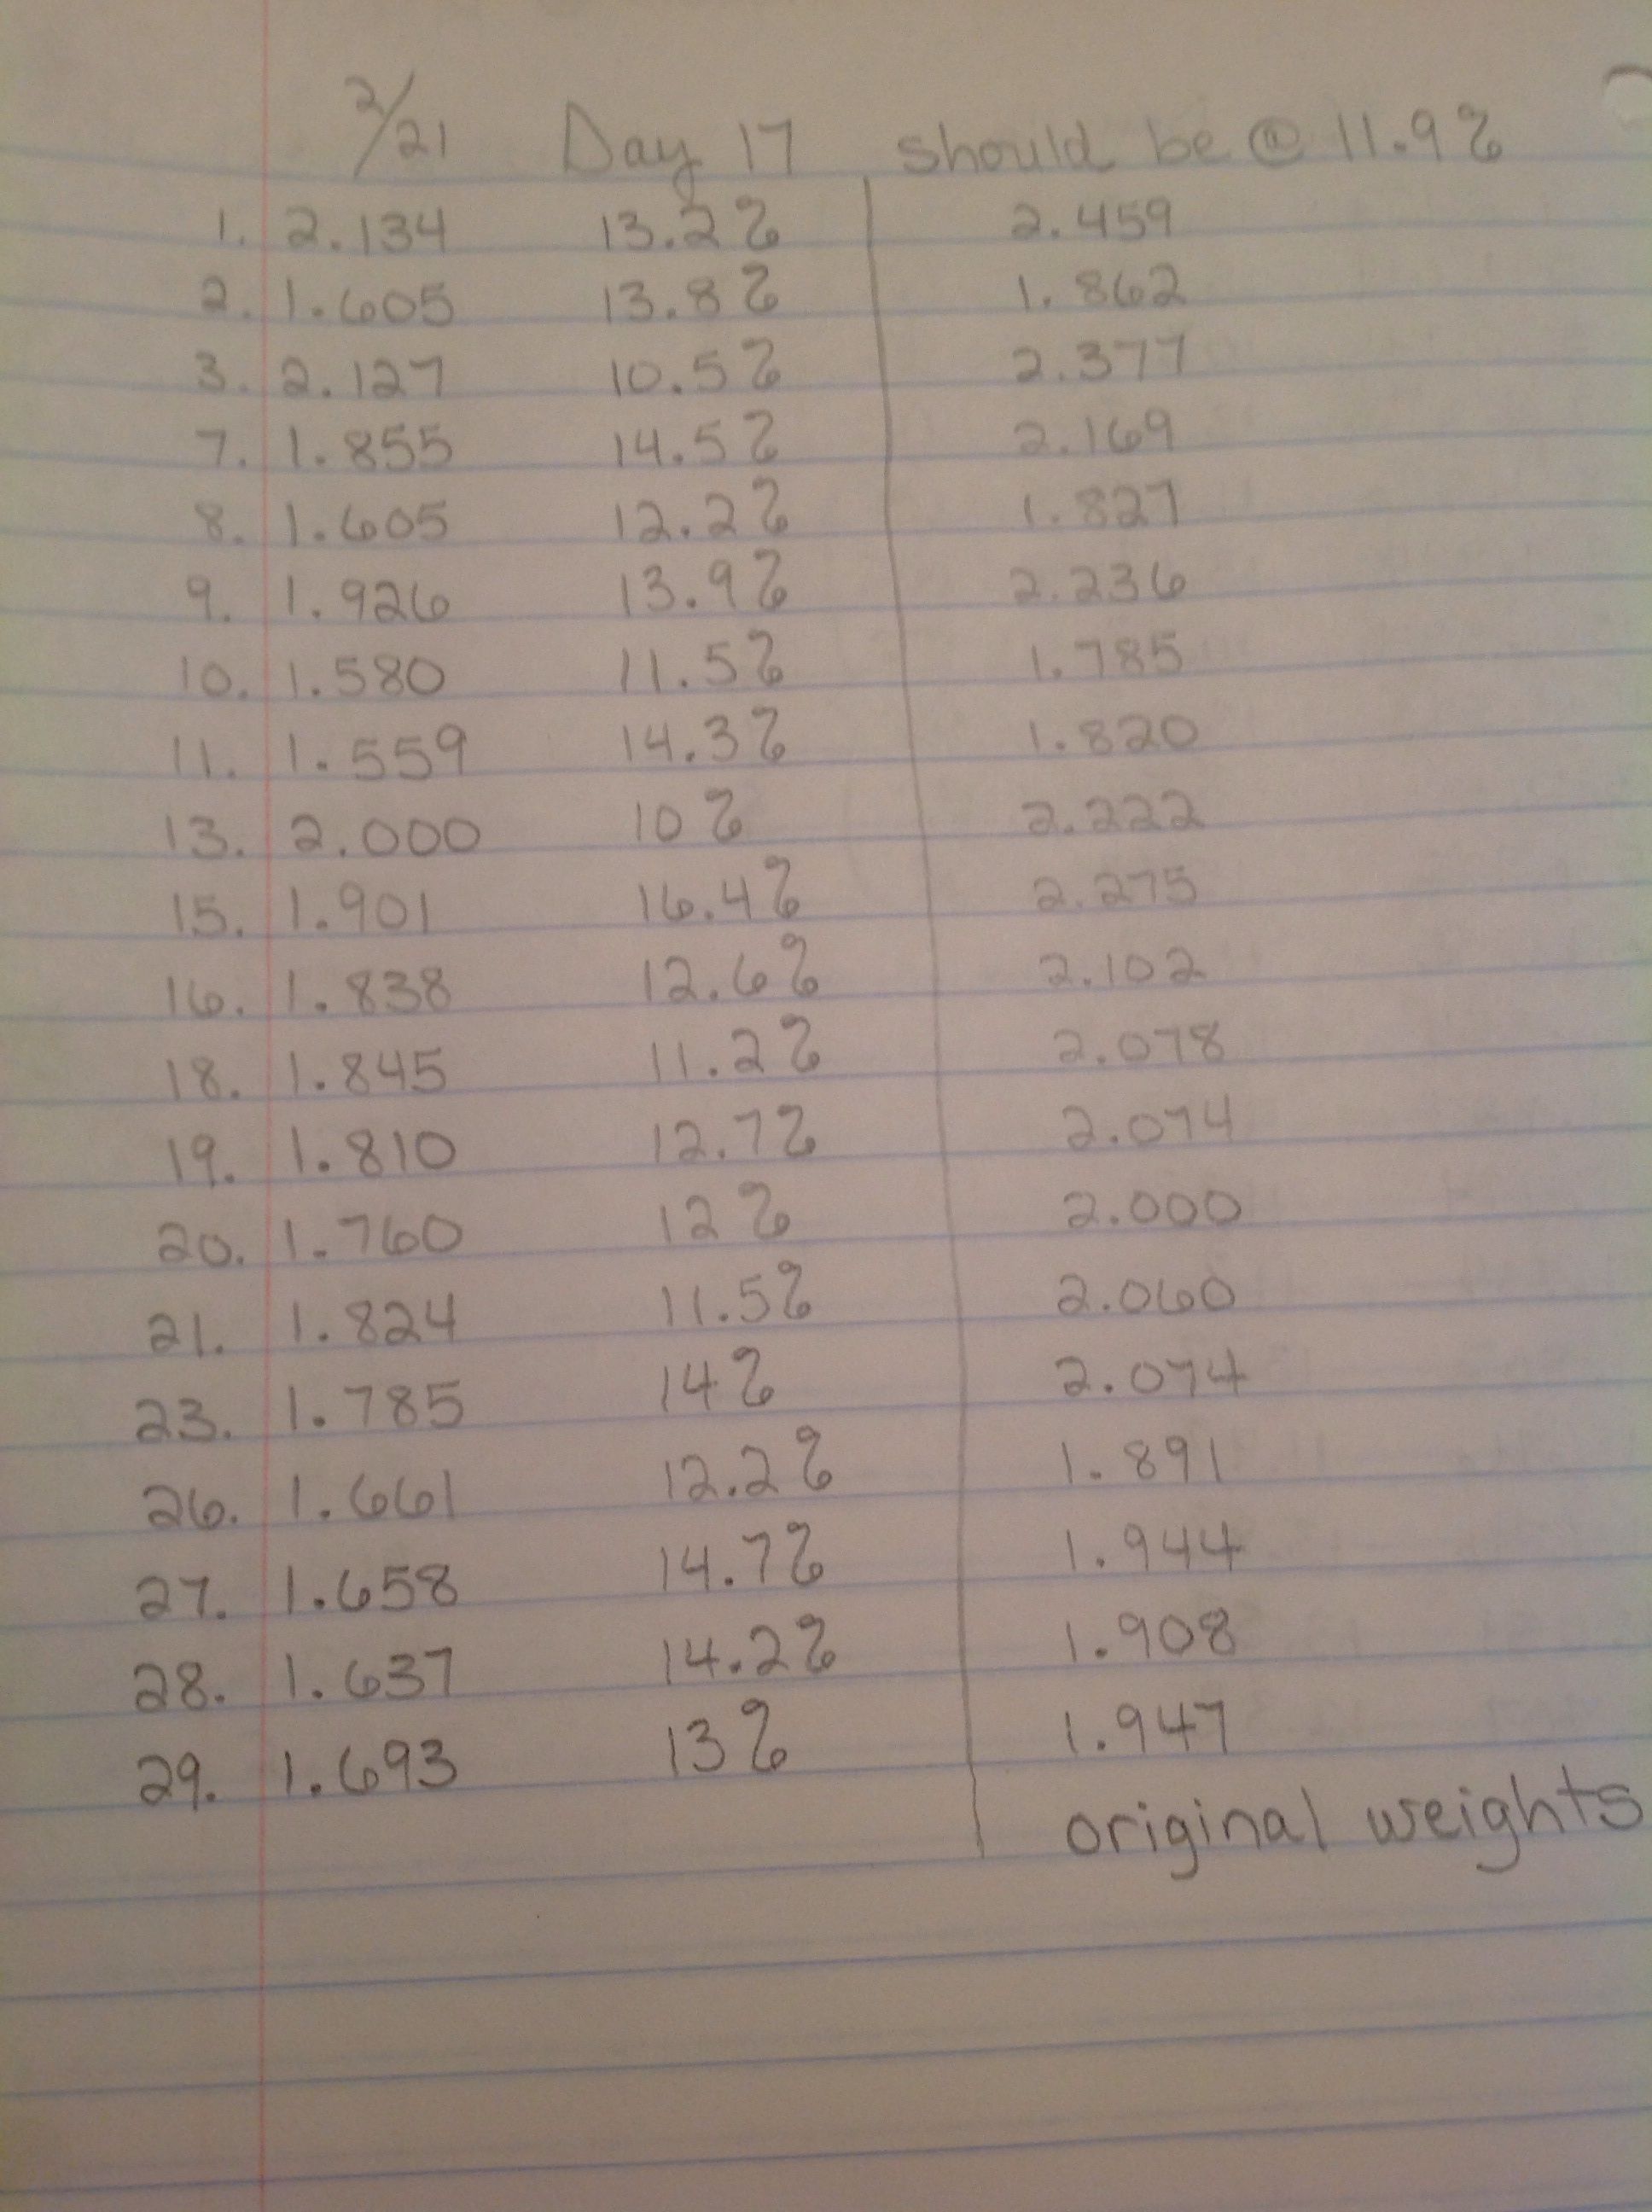 2/21 Day 17 should be @ 11.9%
1. 2.134 13.2% 2.459
2. 1.605 13.8% 1.862
3. 2.127 10.5% 2.377
7. 1.855 14.5% 2.169
8. 1.605 12.2% 1.827
9. 1.926 13.9% 2.236
10. 1.580 11.5% 1.785
11. 1.559 14.3% 1.820
13. 2.000 10% 2.222
15. 1.901 16.4% 2.275
16. 1.838 12.6% 2.102
18. 1.845 11.2% 2.078
19. 1.810 12.7% 2.074
20. 1.760 12% 2.000
21. 1.824 11.5% 2.060
23. 1.785 14% 2.074
26. 1.661 12.2% 1.891
27. 1.658 14.7% 1.944
28. 1.637 14.2% 1.908
29. 1.693 13% 1.947
original weights